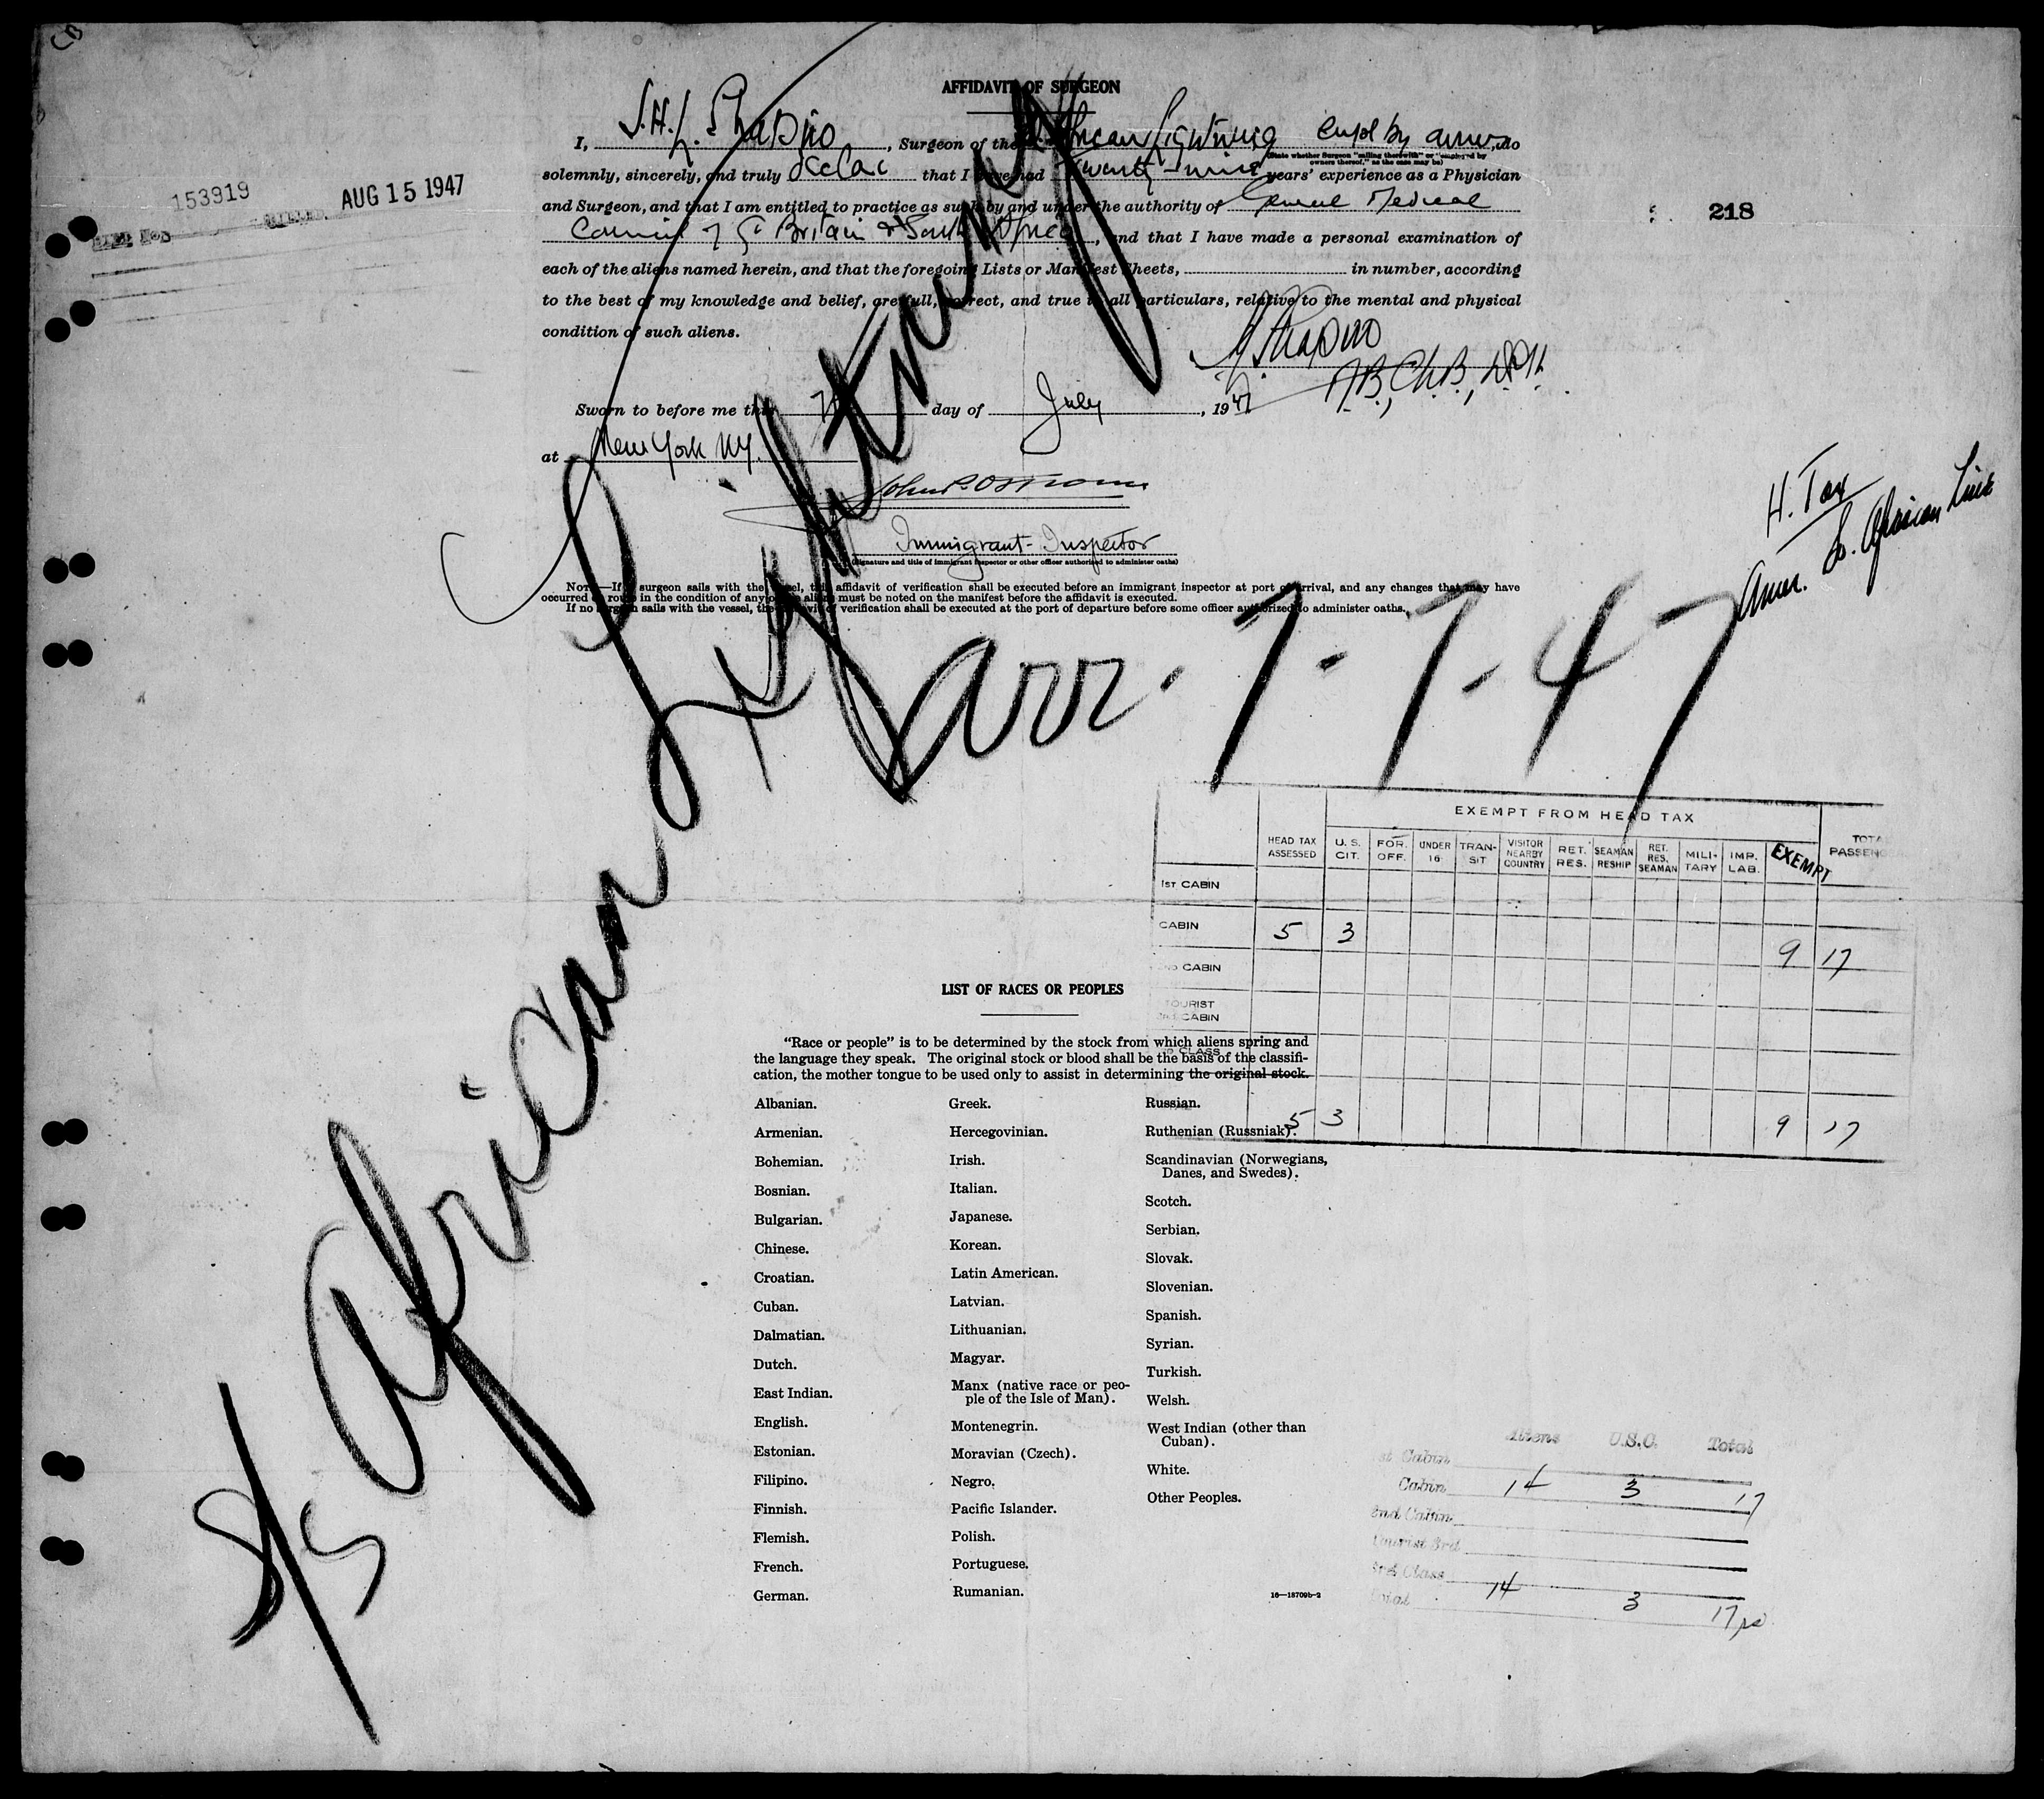 AFFIDAVIT OF SURGEON
I, S.H.L. Shapiro, Surgeon of the African Lightning empl by owner, do
(State whether Surgeon "sailing therewith" or "employed by owners thereof," as the case may be)
solemnly, sincerely, and truly declare that I have had twenty-nine years' experience as a Physician
and Surgeon, and that I am entitled to practice as such by and under the authority of General Medical
Council of Gt Britain & South Africa, and that I have made a personal examination of
each of the aliens named herein, and that the foregoing Lists or Manifest Sheets, in number, according
to the best of my knowledge and belief, are full, correct, and true in all particulars, relative to the mental and physical
condition of such aliens.
153919
BILL No.
BILLED AUG 15 1947
218
Shapiro
M.B., Ch.B., D.P.H.
Sworn to before me this 7th day of July, 1947
at New York NY.
Immigrant-Inspector
(Signature and title of immigrant inspector or other officer authorized to administer oaths)
NOTE—If a surgeon sails with the vessel, this affidavit of verification shall be executed before an immigrant inspector at port of arrival, and any changes that may have
occurred en route in the condition of any of the aliens must be noted on the manifest before the affidavit is executed.
If no surgeon sails with the vessel, the affidavit of verification shall be executed at the port of departure before some officer authorized to administer oaths.
H. Tax
Amer. So. African Line
S/S African Lightning
arr. 7-7-47
EXEMPT FROM HEAD TAX
HEAD TAX ASSESSED U.S. CIT. FOR. OFF. UNDER 16 TRANSIT VISITOR NEARBY COUNTRY RET. RES. SEAMAN RESHIP RET. RES. SEAMAN MILITARY IMP. LAB. EXEMPT TOTAL PASSENG
1ST CABIN
CABIN 5 3 9 17
2ND CABIN
TOURIST
CABIN
CLASS
5 3 9 17
LIST OF RACES OR PEOPLES
"Race or people" is to be determined by the stock from which aliens spring and
the language they speak. The original stock or blood shall be the basis of the classifi-
cation, the mother tongue to be used only to assist in determining the original stock.
Albanian.
Armenian.
Bohemian.
Bosnian.
Bulgarian.
Chinese.
Croatian.
Cuban.
Dalmatian.
Dutch.
East Indian.
English.
Estonian.
Filipino.
Finnish.
Flemish.
French.
German.
Greek.
Hercegovinian.
Irish.
Italian.
Japanese.
Korean.
Latin American.
Latvian.
Lithuanian.
Magyar.
Manx (native race or peo-
ple of the Isle of Man).
Montenegrin.
Moravian (Czech).
Negro.
Pacific Islander.
Polish.
Portuguese.
Rumanian.
Russian.
Ruthenian (Russniak).
Scandinavian (Norwegians,
Danes, and Swedes).
Scotch.
Serbian.
Slovak.
Slovenian.
Spanish.
Syrian.
Turkish.
Welsh.
West Indian (other than
Cuban).
White.
Other Peoples.
16—18709b-2
Aliens U.S.C. Total
1st Cabin
Cabin 14 3 17
2nd Cabin
Tourist 3rd
3rd Class
Total 14 3 17